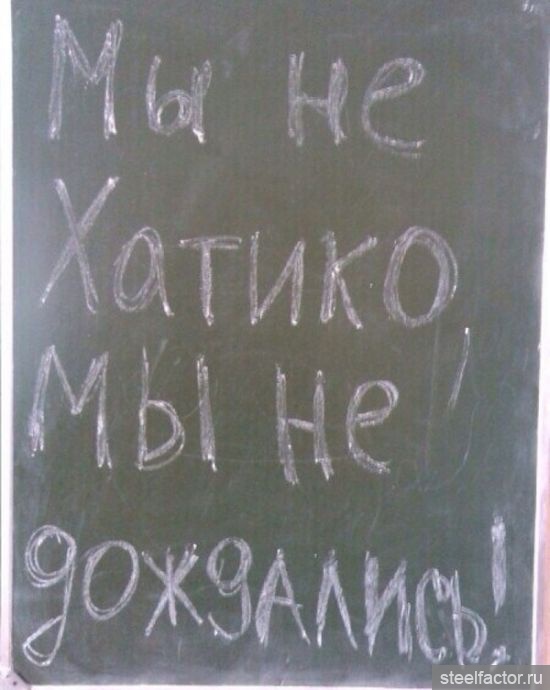 Мы не
Хатико,
мы не
дождались!
steelfactor.ru